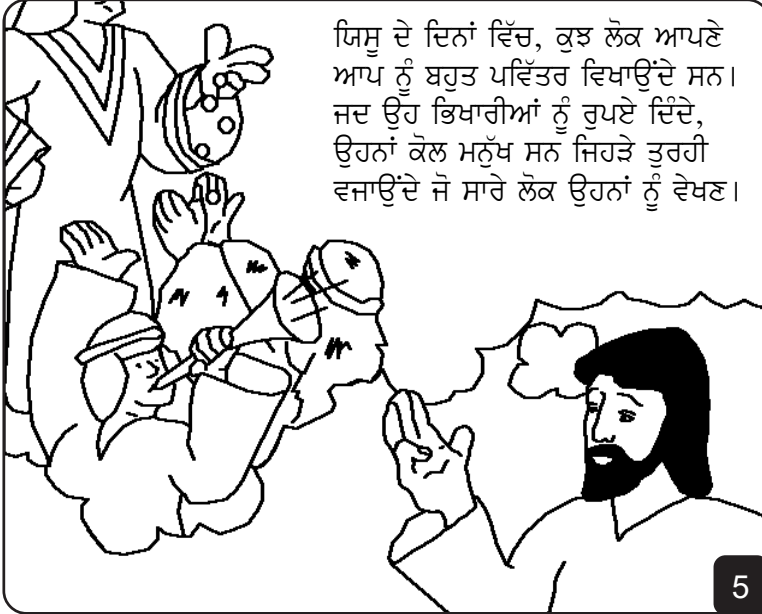 ਯਿਸੂ ਦੇ ਦਿਨਾਂ ਵਿੱਚ, ਕੁਝ ਲੋਕ ਆਪਣੇ
ਆਪ ਨੂੰ ਬਹੁਤ ਪਵਿੱਤਰ ਵਿਖਾਉਂਦੇ ਸਨ।
ਜਦ ਉਹ ਭਿਖਾਰੀਆਂ ਨੂੰ ਰੁਪਏ ਦਿੰਦੇ,
ਉਹਨਾਂ ਕੋਲ ਮਨੁੱਖ ਸਨ ਜਿਹੜੇ ਤੁਰਹੀ
ਵਜਾਉਂਦੇ ਜੋ ਸਾਰੇ ਲੋਕ ਉਹਨਾਂ ਨੂੰ ਵੇਖਣ।
5